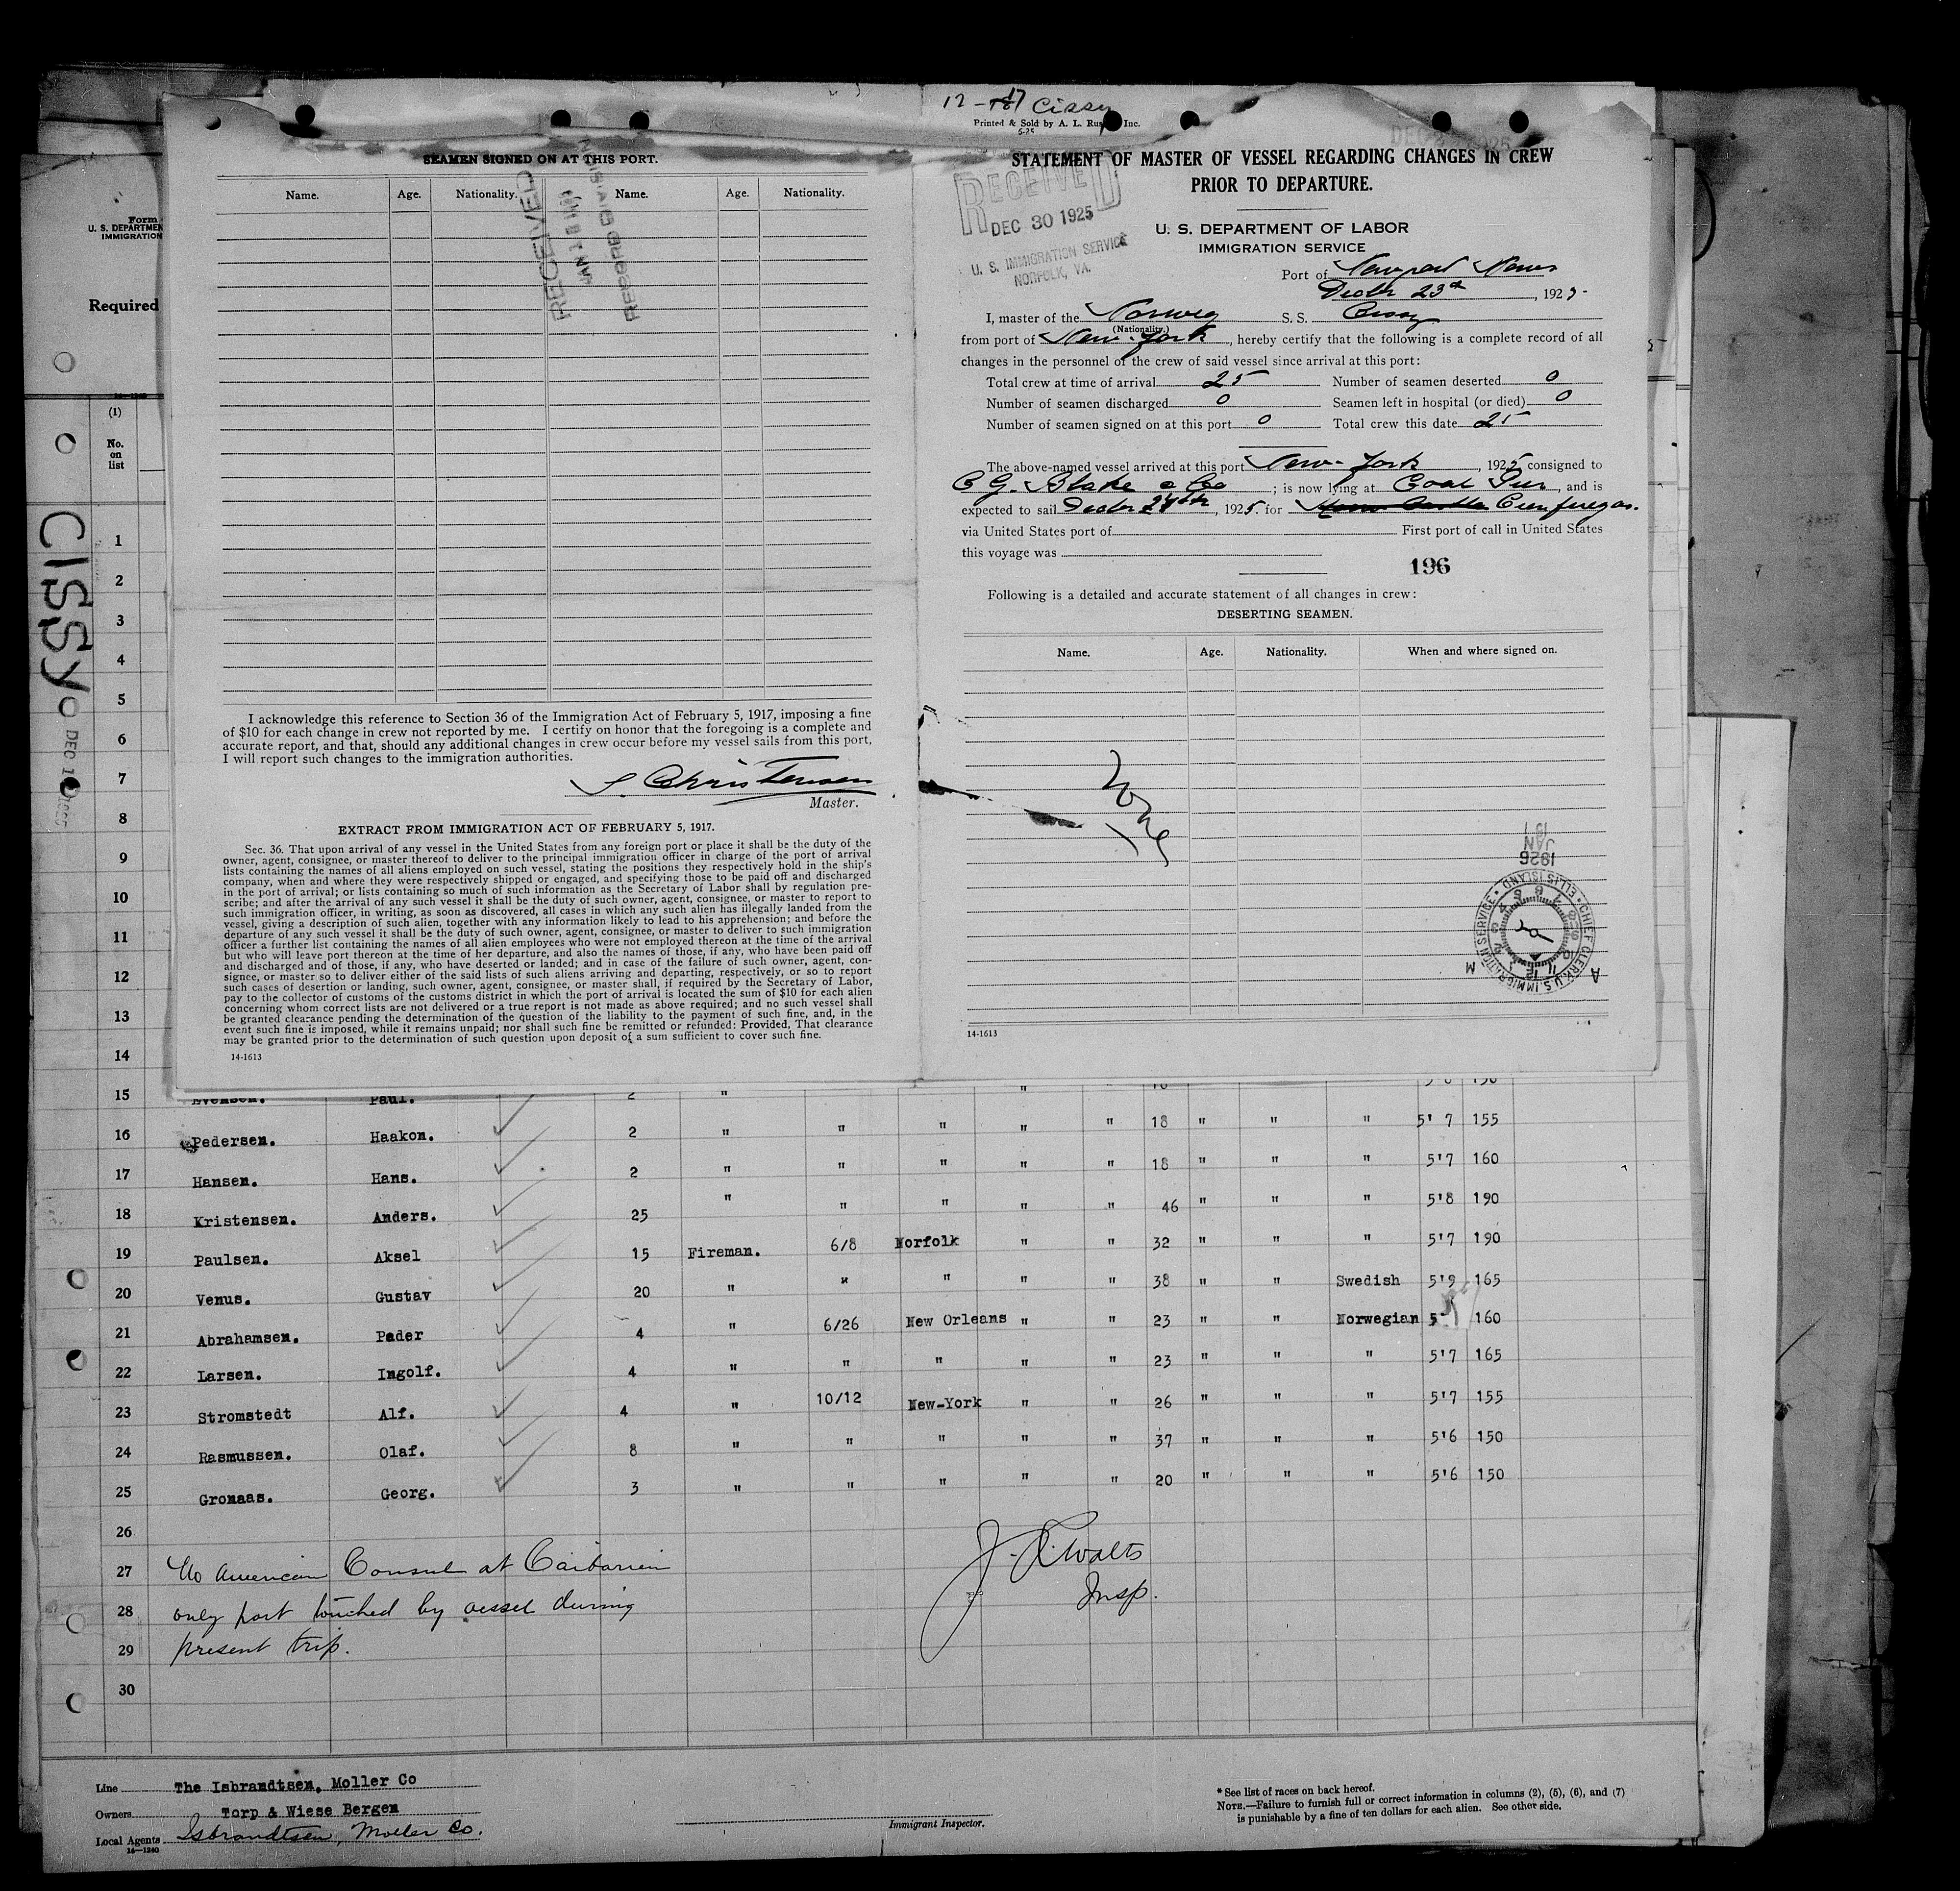 12-17 Cissy
Printed & Sold by A. L. Inc.
5-25
SEAMEN SIGNED ON AT THIS PORT.
Name. Age. Nationality. Name. Age. Nationality.
RECEIVED
JAN 8 1926
I acknowledge this reference to Section 36 of the Immigration Act of February 5, 1917, imposing a fine
of $10 for each change in crew not reported by me. I certify on honor that the foregoing is a complete and
accurate report, and that, should any additional changes in crew occur before my vessel sails from this port,
I will report such changes to the immigration authorities.
Christensen
Master.
EXTRACT FROM IMMIGRATION ACT OF FEBRUARY 5, 1917.
Sec. 36. That upon arrival of any vessel in the United States from any foreign port or place it shall be the duty of the
owner, agent, consignee, or master thereof to deliver to the principal immigration officer in charge of the port of arrival
lists containing the names of all aliens employed on such vessel, stating the positions they respectively hold in the ship's
company, when and where they were respectively shipped or engaged, and specifying those to be paid off and discharged
in the port of arrival; or lists containing so much of such information as the Secretary of Labor shall by regulation pre-
scribe; and after the arrival of any such vessel it shall be the duty of such owner, agent, consignee, or master to report to
such immigration officer, in writing, as soon as discovered, all cases in which any such alien has illegally landed from the
vessel, giving a description of such alien, together with any information likely to lead to his apprehension; and before the
departure of any such vessel it shall be the duty of such owner, agent, consignee, or master to deliver to such immigration
officer a further list containing the names of all alien employees who were not employed thereon at the time of the arrival
but who will leave port thereon at the time of her departure, and also the names of those, if any, who have been paid off
and discharged and of those, if any, who have deserted or landed; and in case of the failure of such owner, agent, con-
signee, or master so to deliver either of the said lists of such aliens arriving and departing, respectively, or so to report
such cases of desertion or landing, such owner, agent, consignee, or master shall, if required by the Secretary of Labor,
pay to the collector of customs of the customs district in which the port of arrival is located the sum of $10 for each alien
concerning whom correct lists are not delivered or a true report is not made as above required; and no such vessel shall
be granted clearance pending the determination of the question of the liability to the payment of such fine, and, in the
event such fine is imposed, while it remains unpaid; nor shall such fine be remitted or refunded: Provided, That clearance
may be granted prior to the determination of such question upon deposit of a sum sufficient to cover such fine.
14-1613
STATEMENT OF MASTER OF VESSEL REGARDING CHANGES IN CREW
PRIOR TO DEPARTURE.
RECEIVED
DEC 30 1925
U. S. IMMIGRATION SERVICE
NORFOLK, VA.
U. S. DEPARTMENT OF LABOR
IMMIGRATION SERVICE
Port of Newport News
Decbr 23rd, 1925
I, master of the Norweg S. S. Cissy
(Nationality.)
from port of New-York, hereby certify that the following is a complete record of all
changes in the personnel of the crew of said vessel since arrival at this port:
Total crew at time of arrival 25 Number of seamen deserted 0
Number of seamen discharged 0 Seamen left in hospital (or died) 0
Number of seamen signed on at this port 0 Total crew this date 25
The above-named vessel arrived at this port New-York, 1925 consigned to
C G. Blake & Co; is now lying at Coal Pier, and is
expected to sail Decbr 24th, 1925. for Cienfuegos.
via United States port of First port of call in United States
this voyage was
196
Following is a detailed and accurate statement of all changes in crew:
DESERTING SEAMEN.
Name. Age. Nationality. When and where signed on.
None
1926
JAN
CHIEF CLERK, U.S. IMMIGRATION SERVICE • ELLIS ISLAND •
A M
14-1613
Form
U. S. DEPARTMEN
IMMIGRATION
Required
14-1240
(1)
No.
on
list
CISSY
DEC 1
1
2
3
4
5
6
7
8
9
10
11
12
13
14
15 Evensen. Paul. 2 " "
16 Pedersen. Haakon. 2 " " " " " 18 " " " 5'7 155
17 Hansen. Hans. 2 " " " " " 18 " " " 5'7 160
18 Kristensen. Anders. 25 " " " " " 46 " " " 5'8 190
19 Paulsen. Aksel 15 Fireman. 6/8 Norfolk " " 32 " " " 5'7 190
20 Venus. Gustav 20 " " " " " 38 " " Swedish 5'9 165
21 Abrahamsen. Peder 4 " 6/26 New Orleans " " 23 " " Norwegian 5' 160
22 Larsen. Ingolf. 4 " " " " " 23 " " " 5'7 165
23 Stromstedt Alf. 4 " 10/12 New-York " " 26 " " " 5'7 155
24 Rasmussen. Olaf. 8 " " " " " 37 " " " 5'6 150
25 Gronaas. Georg. 3 " " " " " 20 " " " 5'6 150
26
27 No American Consul at Caibarien
28 only port touched by vessel during
29 present trip.
30
J. R. Walts
Insp.
Line The Isbrandtsen, Moller Co
Owners Torp & Wiese Bergen
Local Agents Isbrandtsen, Moller Co.
14-1240
Immigrant Inspector.
* See list of races on back hereof.
NOTE.—Failure to furnish full or correct information in columns (2), (5), (6), and (7)
is punishable by a fine of ten dollars for each alien. See other side.